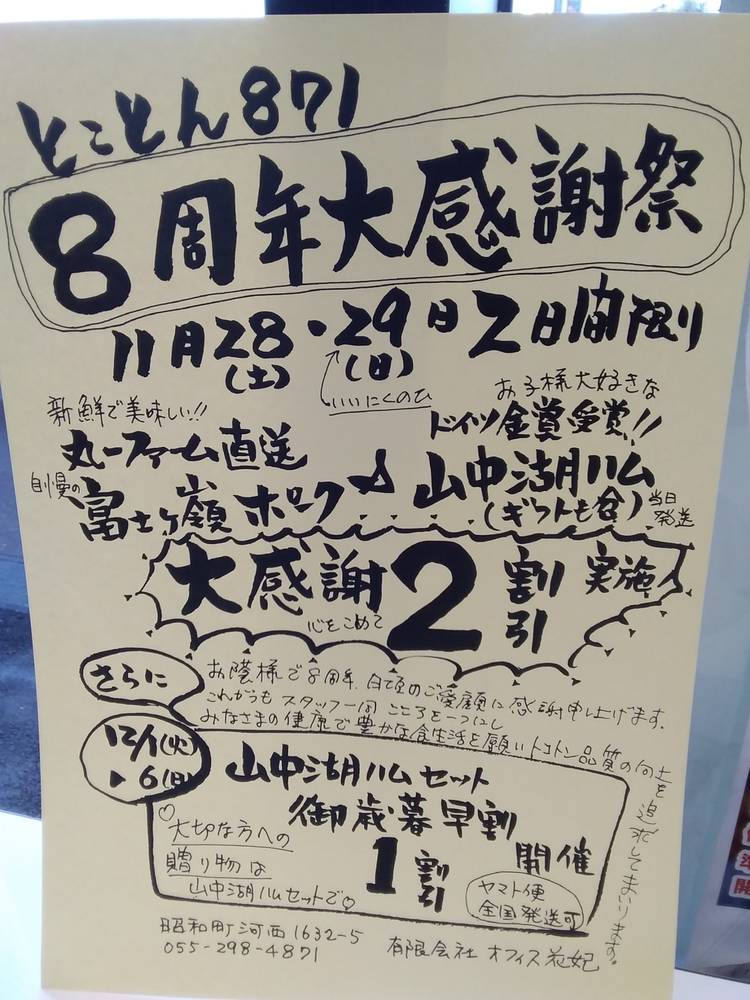 とことん871
8周年大感謝祭
11月28・29日2日間限り
(土) (日)
いいにくのひ
新鮮で美味しい!!
丸一ファーム直送
自慢の富士ヶ嶺ポーク
お子様大好きな
ドイツ金賞受賞!!
山中湖ハム
(ギフトも含) 当日発送
大感謝2割引実施
心をこめて
さらに
お蔭様で8周年、日頃のご愛顧に感謝申し上げます。
これからもスタッフ一同こころを一つにし
みなさまの健康で豊かな食生活を願いトコトン品質の向上を追求してまいります。
12/1(火)
6(日)
山中湖ハムセット
御歳暮早割
1割引
開催
♡大切な方への
贈り物は
山中湖ハムセットで♡
ヤマト便
全国発送可
昭和町河西1632-5
055-298-4871
有限会社 オフィス花妃